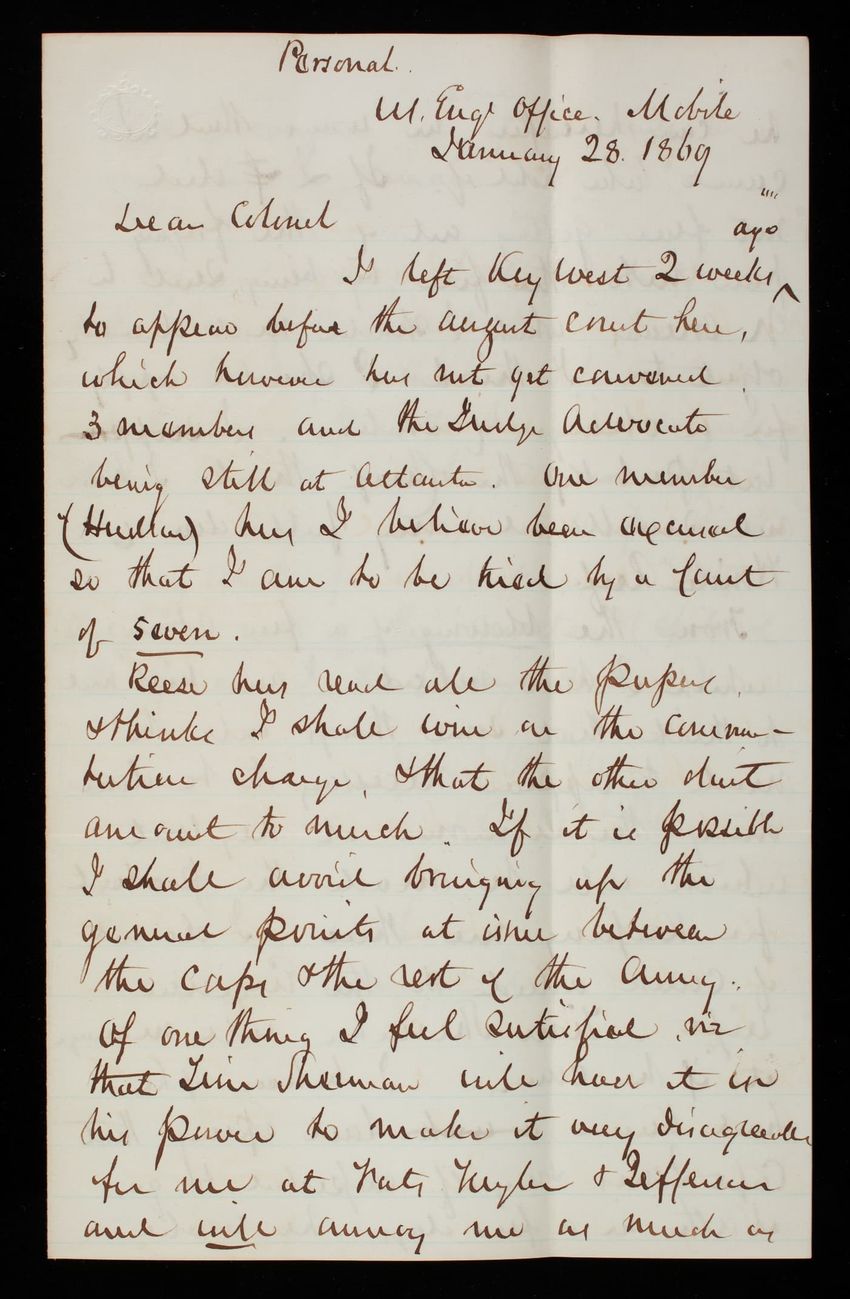 Personal.
U.S. Engr Office. Mobile
January 28. 1869
Dear Colonel
ago
I left Key West 2 weeks ^
to appear before the august court here,
which however has not yet convened,
3 members and the Judge Advocate
being still at Atlanta. One member
() has I believe been excused
so that I am to be tried by a Court
of seven.
Reese has read all the papers,
& thinks I shall win on the commu-
tation charge, & that the other dont
amount to much. If it is possible
I shall avoid bringing up the
general points at issue between
the Corps & the rest of the Army.
Of one thing I feel satisfied, viz
that Sherman will have it in
his power to make it very disagreeable
for me at Forts Taylor & Jefferson
and will annoy me as much as